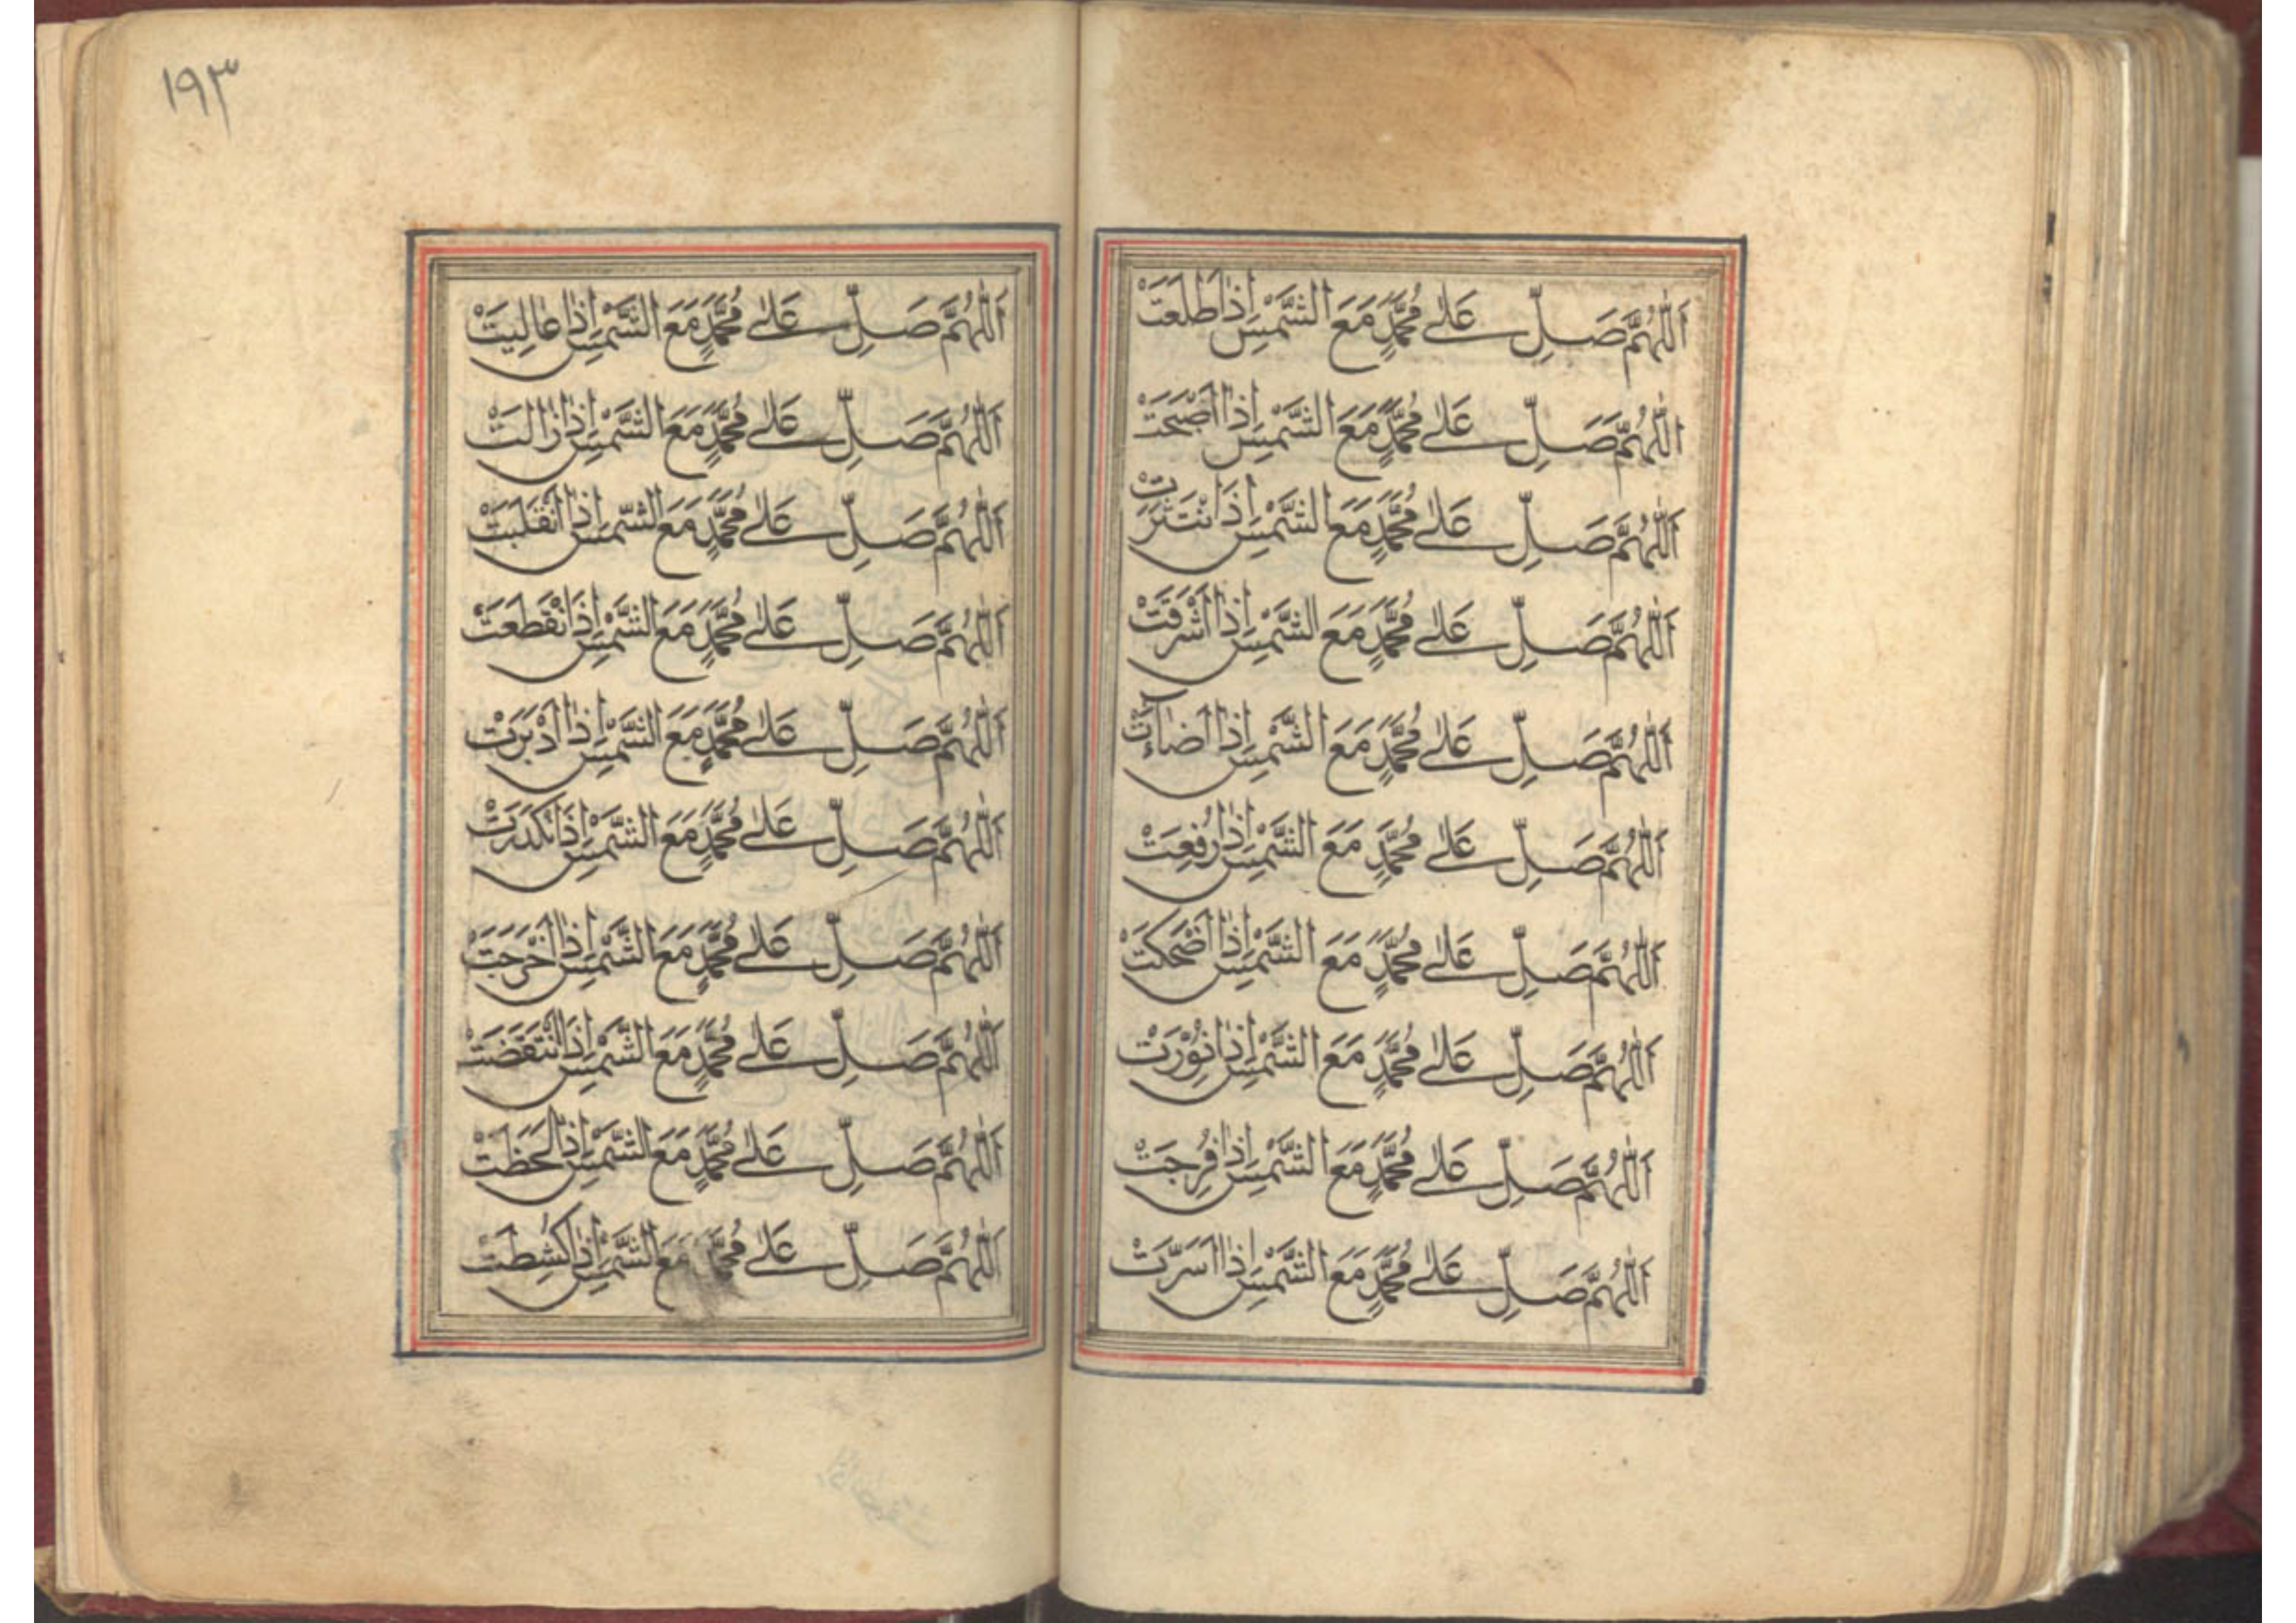 اَللّٰهُمَّ صَلِّ عَلٰى مُحَمَّدٍ مَعَ الشَّمْسِ اِذَا طَلَعَتْ
اَللّٰهُمَّ صَلِّ عَلٰى مُحَمَّدٍ مَعَ الشَّمْسِ اِذَا اَصْبَحَتْ
اَللّٰهُمَّ صَلِّ عَلٰى مُحَمَّدٍ مَعَ الشَّمْسِ اِذَا نْتَثَرَتْ
اَللّٰهُمَّ صَلِّ عَلٰى مُحَمَّدٍ مَعَ الشَّمْسِ اِذَا اَشْرَقَتْ
اَللّٰهُمَّ صَلِّ عَلٰى مُحَمَّدٍ مَعَ الشَّمْسِ اِذَا اَضَآءَتْ
اَللّٰهُمَّ صَلِّ عَلٰى مُحَمَّدٍ مَعَ الشَّمْسِ اِذَا رُفِعَتْ
اَللّٰهُمَّ صَلِّ عَلٰى مُحَمَّدٍ مَعَ الشَّمْسِ اِذَا اَضْحَكَتْ
اَللّٰهُمَّ صَلِّ عَلٰى مُحَمَّدٍ مَعَ الشَّمْسِ اِذَا نُوِّرَتْ
اَللّٰهُمَّ صَلِّ عَلٰى مُحَمَّدٍ مَعَ الشَّمْسِ اِذَا فُرِجَتْ
اَللّٰهُمَّ صَلِّ عَلٰى مُحَمَّدٍ مَعَ الشَّمْسِ اِذَا اَسَرَّتْ
١٩٣
اَللّٰهُمَّ صَلِّ عَلٰى مُحَمَّدٍ مَعَ الشَّمْسِ اِذَا عَالِيَتْ
اَللّٰهُمَّ صَلِّ عَلٰى مُحَمَّدٍ مَعَ الشَّمْسِ اِذَا زَالَتْ
اَللّٰهُمَّ صَلِّ عَلٰى مُحَمَّدٍ مَعَ الشَّمْسِ اِذَا انْقَلَبَتْ
اَللّٰهُمَّ صَلِّ عَلٰى مُحَمَّدٍ مَعَ الشَّمْسِ اِذَا نْقَطَعَتْ
اَللّٰهُمَّ صَلِّ عَلٰى مُحَمَّدٍ مَعَ الشَّمْسِ اِذَا اَدْبَرَتْ
اَللّٰهُمَّ صَلِّ عَلٰى مُحَمَّدٍ مَعَ الشَّمْسِ اِذَا نْكَدَرَتْ
اَللّٰهُمَّ صَلِّ عَلٰى مُحَمَّدٍ مَعَ الشَّمْسِ اِذَا اَخْرَجَتْ
اَللّٰهُمَّ صَلِّ عَلٰى مُحَمَّدٍ مَعَ الشَّمْسِ اِذَا انْتَقَضَتْ
اَللّٰهُمَّ صَلِّ عَلٰى مُحَمَّدٍ مَعَ الشَّمْسِ اِذَا لَحَظَتْ
اَللّٰهُمَّ صَلِّ عَلٰى مُحَمَّدٍ مَعَ الشَّمْسِ اِذَا كُشِطَتْ